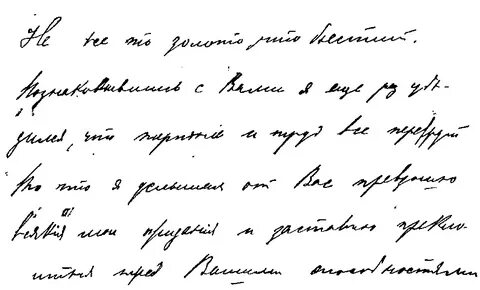 Не все то золото, что блестит.
Познакомившись с Вами я еще раз убе-
дился, что терпение и труд все перетрут
Но то что я услышал от Вас превзошло
всякия мои ожидания и заставило прекло-
ниться перед Вашими способностями